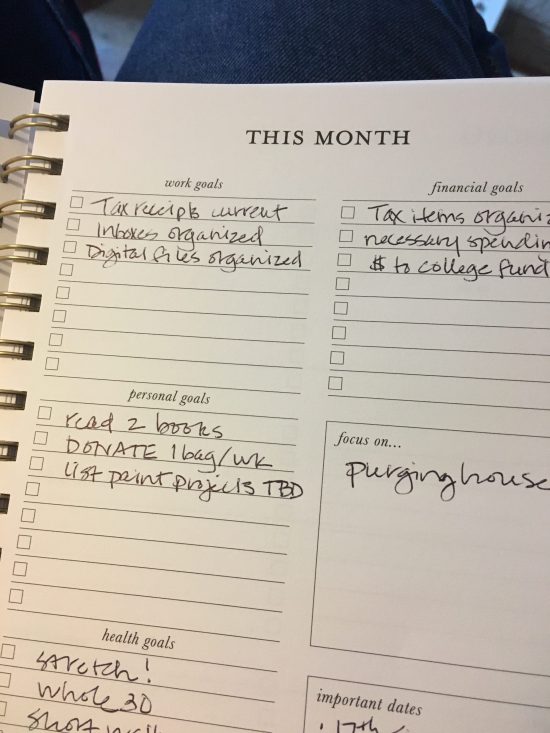 THIS MONTH
work goals
Tax receipts current
Inboxes organized
Digital files organized
financial goals
Tax items organiz
necessary spendin
$ to college fund
personal goals
read 2 books
DONATE 1 bag/wk
list paint projects TBD
focus on...
purging house
health goals
stretch!
Whole 30
Short
important dates
17th